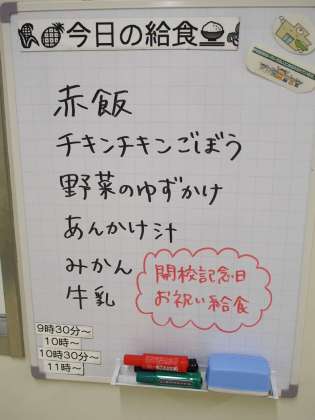 今日の給食
赤飯
チキンチキンごぼう
野菜のゆずかけ
あんかけ汁
みかん
牛乳
開校記念日
お祝い給食
9時30分～
10時～
10時30分～
11時～